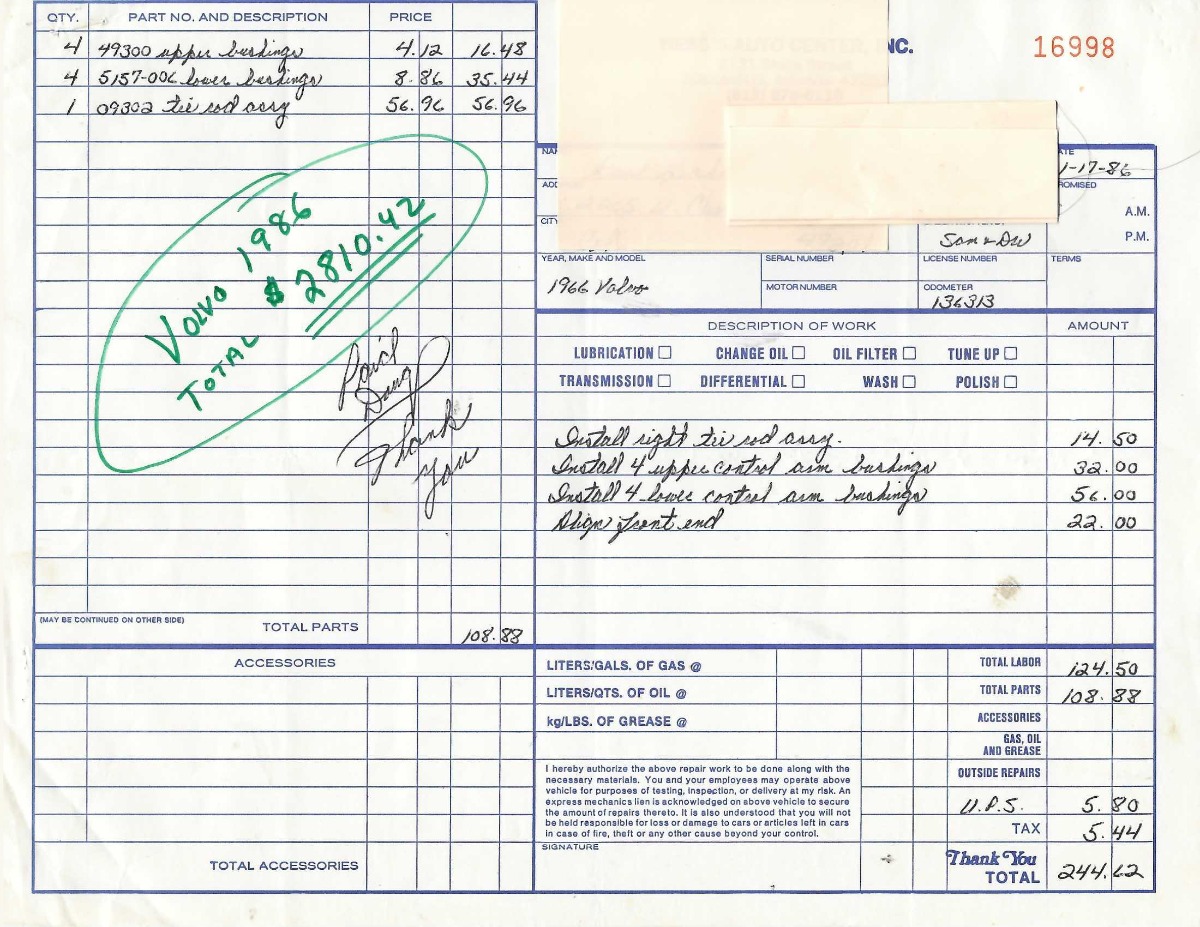 QTY. PART NO. AND DESCRIPTION PRICE
4 49300 upper bushings 4.12 16.48
4 5157-006 lower bushings 8.86 35.44
1 09302 tie rod assy 56.96 56.96
VOLVO 1986
TOTAL $2810.42
Paid
Doug
Thank
You
(MAY BE CONTINUED ON OTHER SIDE) TOTAL PARTS 108.88
ACCESSORIES
TOTAL ACCESSORIES
INC. 16998
1-17-86
A.M.
P.M.
YEAR, MAKE AND MODEL SERIAL NUMBER LICENSE NUMBER TERMS
1966 Volvo MOTOR NUMBER ODOMETER
136313
DESCRIPTION OF WORK AMOUNT
LUBRICATION CHANGE OIL OIL FILTER TUNE UP
TRANSMISSION DIFFERENTIAL WASH POLISH
Install right tie rod assy. 14.50
Install 4 upper control arm bushings 32.00
Install 4 lower control arm bushings 56.00
Align front end 22.00
LITERS/GALS. OF GAS @ TOTAL LABOR 124.50
LITERS/QTS. OF OIL @ TOTAL PARTS 108.88
kg/LBS. OF GREASE @ ACCESSORIES
GAS, OIL
AND GREASE
OUTSIDE REPAIRS
U.P.S. 5.80
TAX 5.44
Thank You
TOTAL 244.62
I hereby authorize the above repair work to be done along with the
necessary materials. You and your employees may operate above
vehicle for purposes of testing, inspection, or delivery at my risk. An
express mechanics lien is acknowledged on above vehicle to secure
the amount of repairs thereto. It is also understood that you will not
be held responsible for loss or damage to cars or articles left in cars
in case of fire, theft or any other cause beyond your control.
SIGNATURE